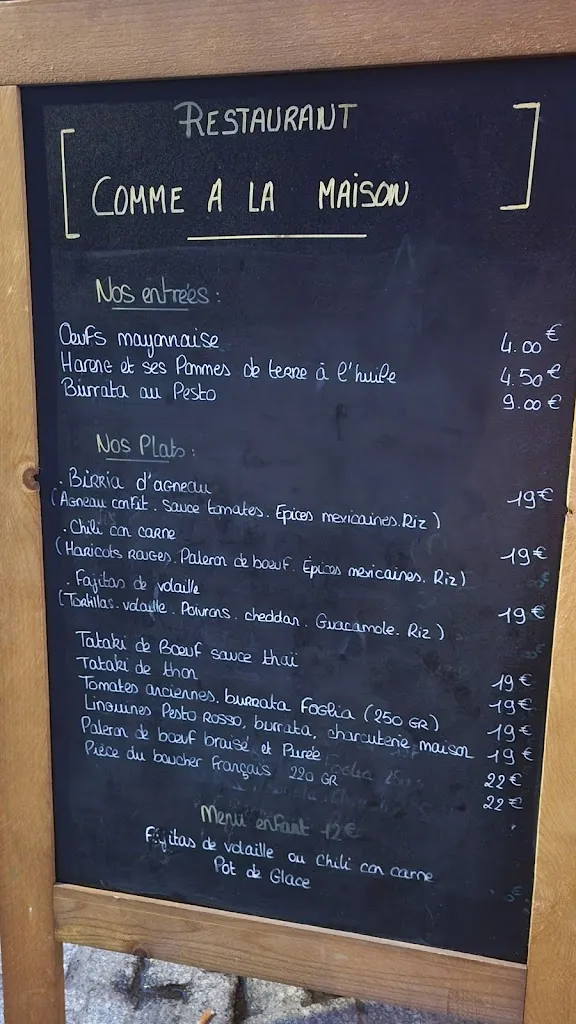 RESTAURANT
COMME A LA MAISON
Nos entrées :
Œufs mayonnaise 4.00€
Hareng et ses Pommes de terre à l'huile 4.50€
Burrata au Pesto 9.00€
Nos Plats :
. Birria d'agneau 19€
(Agneau confit. Sauce tomates. Epices mexicaines. Riz)
. Chili con carne 19€
(Haricots rouges. Paleron de boeuf. Épices mexicaines. Riz)
. Fajitas de volaille 19€
(Tortillas. volaille. Poivrons. cheddar. Guacamole. Riz)
Tataki de Boeuf sauce thaï 19€
Tataki de thon 19€
Tomates anciennes, burrata Foglia (250 GR) 19€
Linguines Pesto Rosso, burrata, charcuterie maison 19€
Paleron de boeuf braisé et Purée 22€
Pièce du boucher Français 220 GR 22€
Menu enfant 12€
Fajitas de volaille ou chili con carne
Pot de Glace